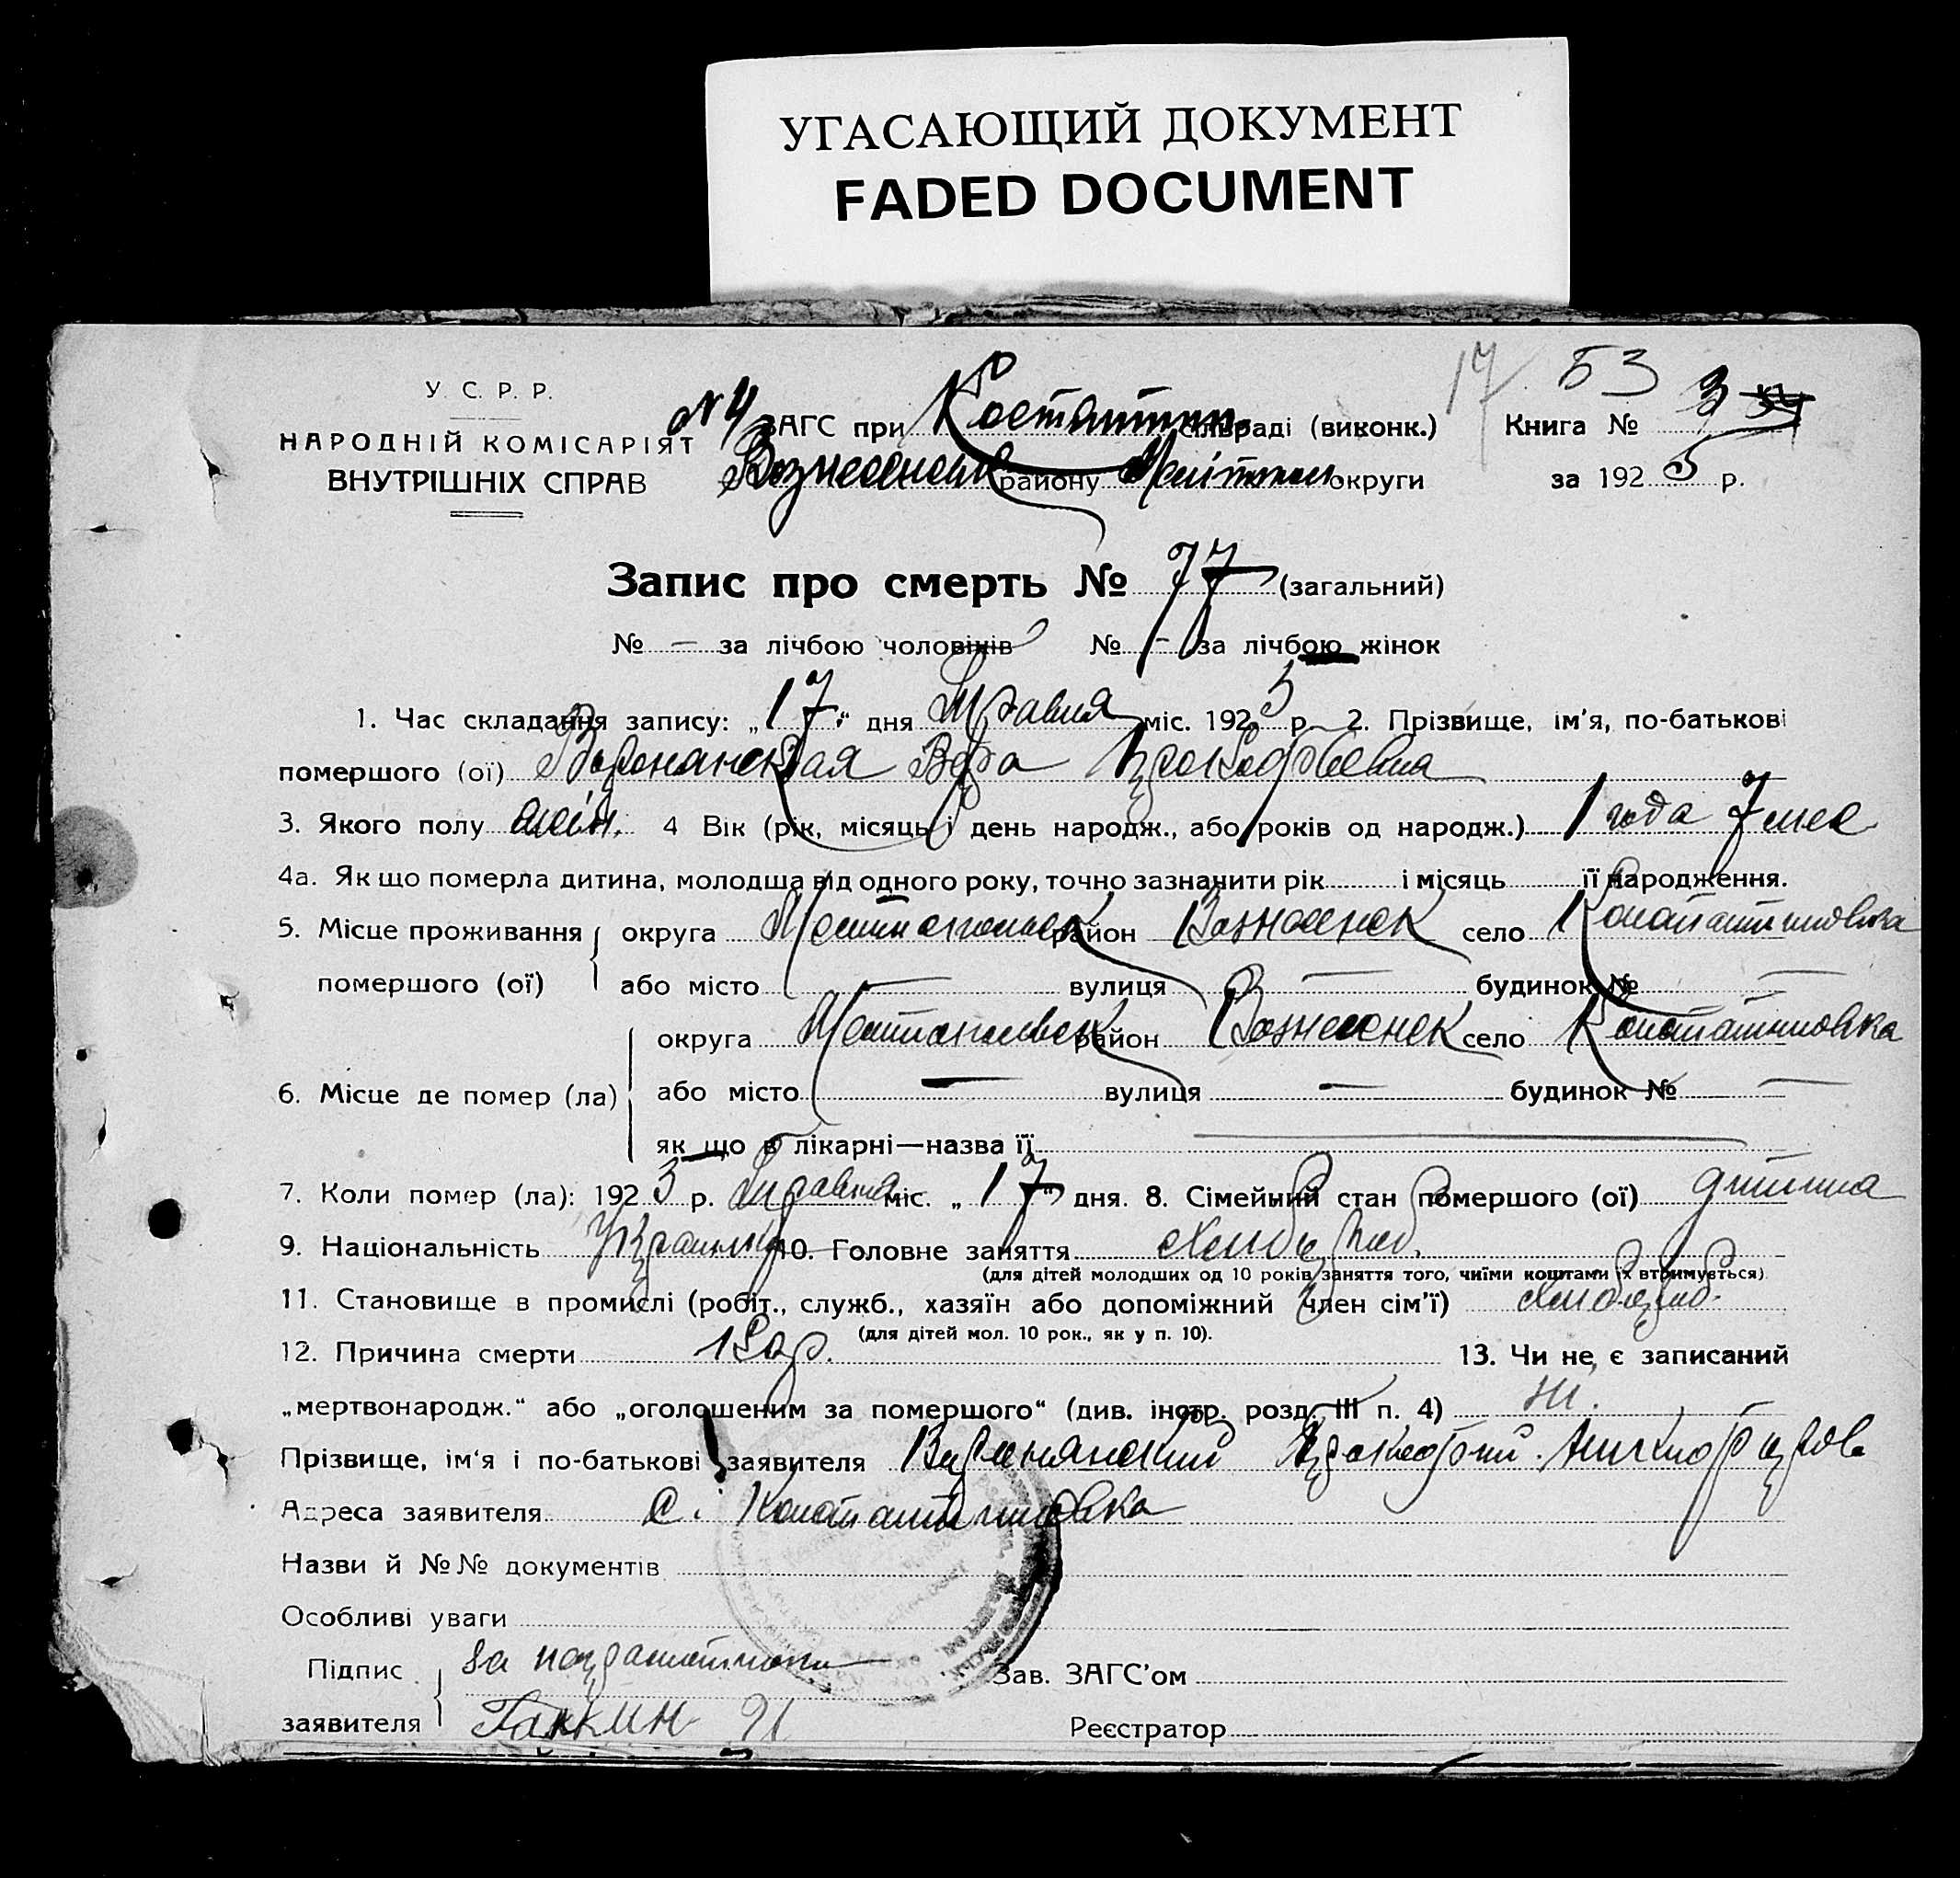 УГАСАЮЩИЙ ДОКУМЕНТ
FADED DOCUMENT
17 БЗ
У. С. Р. Р.
НАРОДНІЙ КОМІСАРІЯТ
ВНУТРІШНІХ СПРАВ
№ 4 ЗАГС при Костантин. сільраді (виконк.) Книга № 3
Вознесенск району округи за 1925 р.
Запис про смерть № 77 (загальний)
№ — за лічбою чоловіків № — за лічбою жінок
1. Час складання запису: „17“ дня Травня міс. 1925 р. 2. Прізвище, ім'я, по-батькові
помершого (ої) Вера Прокофьевна
3. Якого полу жін. 4 Вік (рік, місяць і день народж., або років од народж.) 1 года 7 мес
4а. Як що померла дитина, молодша від одного року, точно зазначити рік і місяць її народження.
5. Місце проживання округа район Вознесенск село Константиновка
помершого (ої) або місто — вулиця — будинок № —
округа район Вознесенск село Константиновка
6. Місце де помер (ла) або місто — вулиця — будинок № —
як що в лікарні—назва її —
7. Коли помер (ла): 1925 р. Травня міс. „17“ дня. 8. Сімейний стан помершого (ої) дитина
9. Національність 10. Головне заняття хлебороб.
(для дітей молодших од 10 років заняття того, чиїми коштами їх втримується)
11. Становище в промислі (робіт., служб., хазяїн або допоміжний член сім'ї)
(для дітей мол. 10 рок., як у п. 10).
12. Причина смерти 13. Чи не є записаний
„мертвонародж.“ або „оголошеним за помершого“ (див. інстр. розд. III п. 4) Ні.
Прізвище, ім'я і по-батькові заявителя Прокофий
Адреса заявителя с. Константиновка
Назви й №№ документів
Особливі уваги
Підпис за Зав. ЗАГС'ом
заявителя Реєстратор